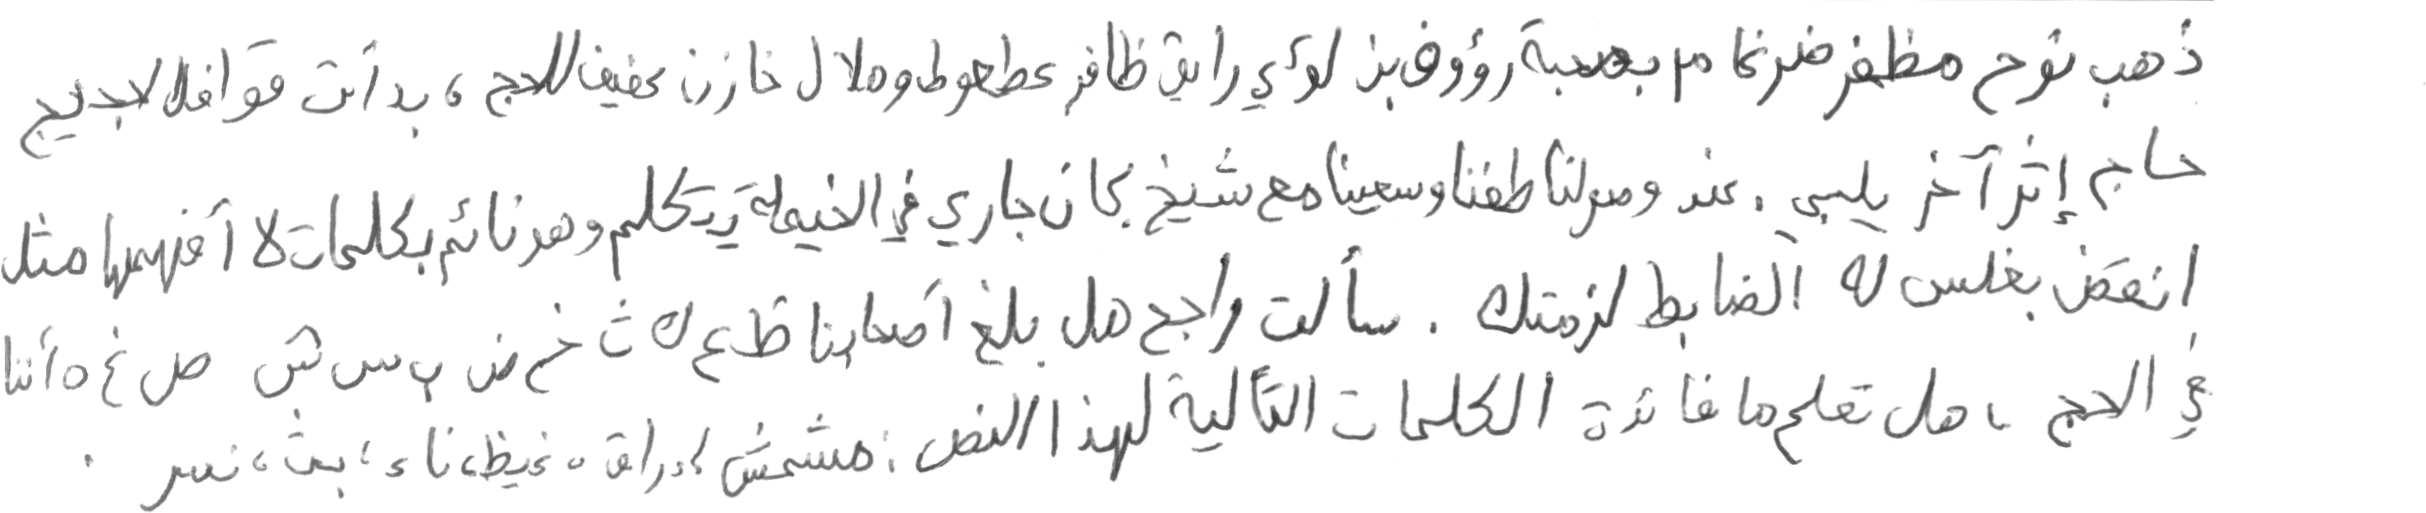 ذهب نوح مظفر ضرغام بصحبة رؤوف بن لؤي رايق ظافر عطعوط وهلال خازن عفيف للحج ، بدأت قوافل الحجيج
حاج إثر آخر يلبي . عند وصولنا طفنا وسعينا مع شيخ كان جاري في الخيمة يتكلم وهو نائم بكلمات لا أفهمها مثل
انقض بغلس له الضابط لزمتك . سألت راجح هل بلغ أصحابنا ظ ع ك ث خ م ض ب س ش ص غ ه أننا
في الحج ، هل تعلم ما فائدة الكلمات التالية لهذا النص : مشمش ، راق ، غيظ ، ناء ، بث ، نسر .